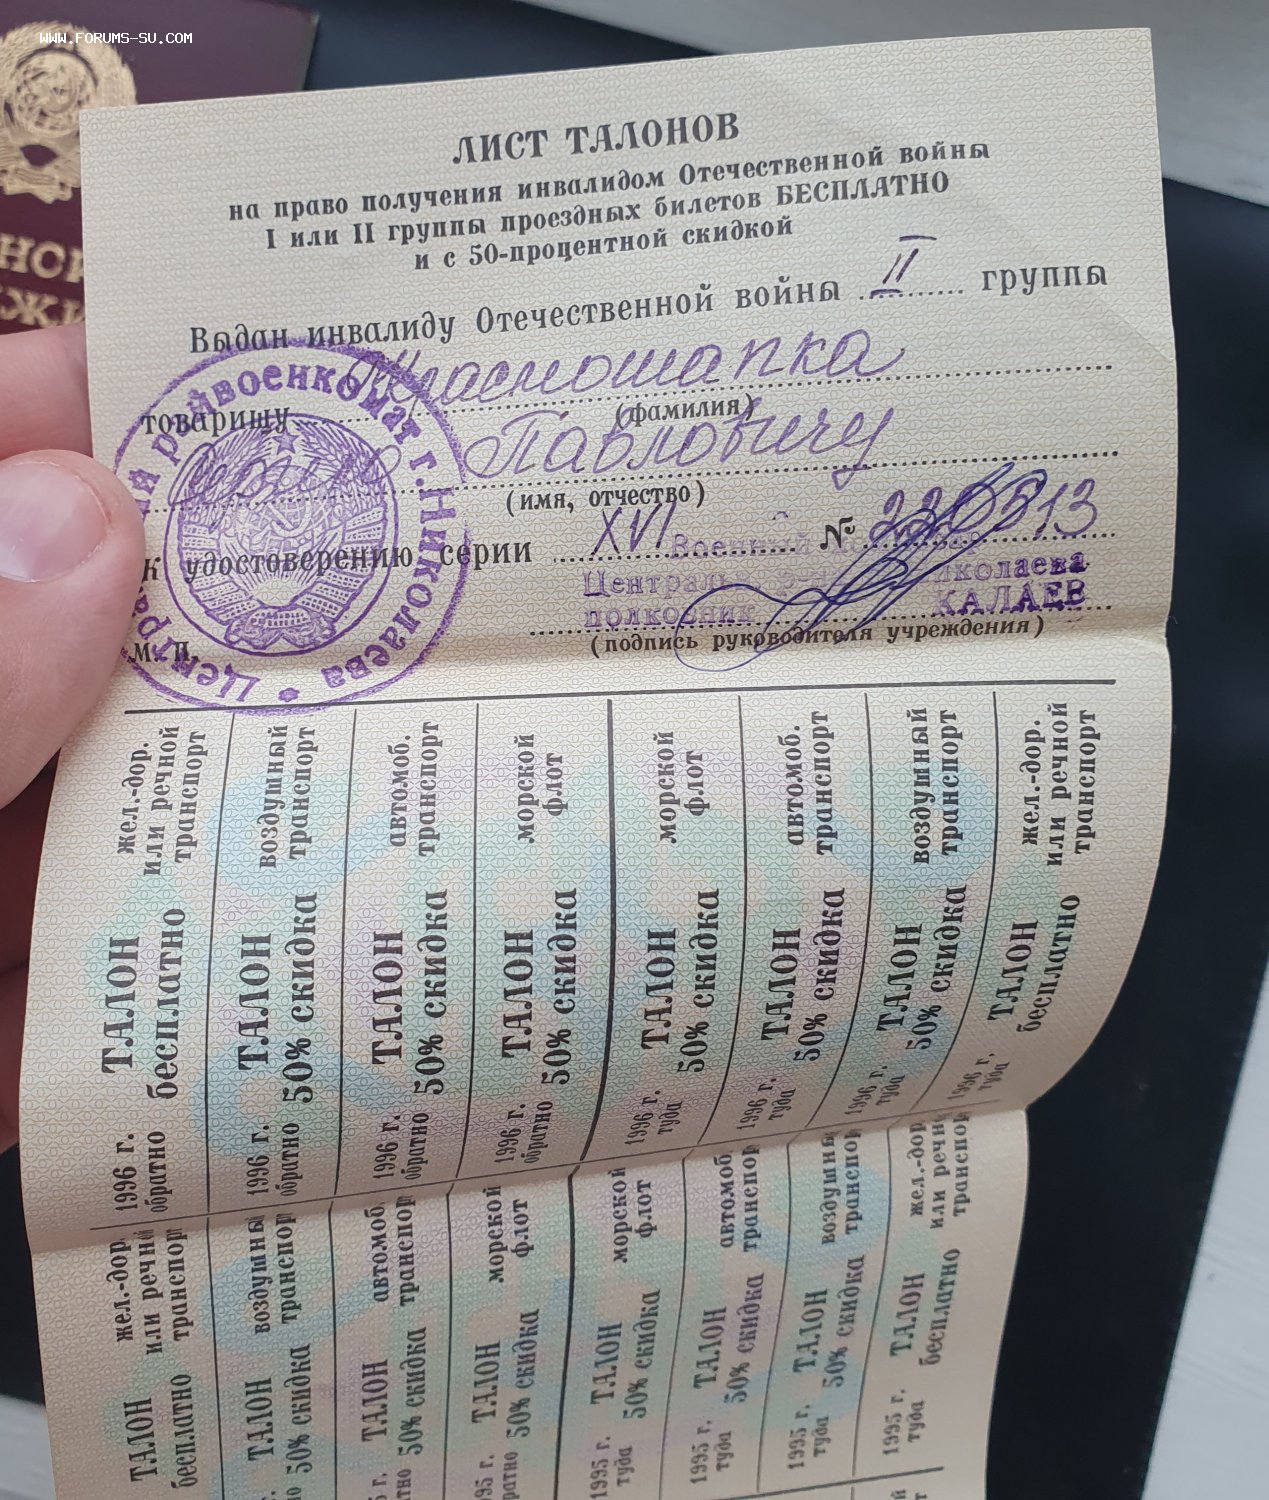 WWW.FORUMS-SU.COM
ЛИСТ ТАЛОНОВ
на право получения инвалидом Отечественной войны
I или II группы проездных билетов БЕСПЛАТНО
и с 50-процентной скидкой
Выдан инвалиду Отечественной войны II группы
товарищу Красношапка
(фамилия)
Павловичу
(имя, отчество)
к удостоверению серии XVI № 220513
Военный
Центральн. р-на Николаева
полковник КАЛАЕВ
(подпись руководителя учреждения)
М. П.
райвоенкомат г. Николаева
жел.-дор. или речной транспорт
ТАЛОН бесплатно
1996 г. обратно
воздушный транспорт
ТАЛОН 50% скидка
1996 г. обратно
автомоб. транспорт
ТАЛОН 50% скидка
1996 г. обратно
морской флот
ТАЛОН 50% скидка
1996 г. обратно
морской флот
ТАЛОН 50% скидка
1996 г. туда
автомоб. транспорт
ТАЛОН 50% скидка
1996 г. туда
воздушный транспорт
ТАЛОН 50% скидка
1996 г. туда
жел.-дор. или речной транспорт
ТАЛОН бесплатно
1996 г. туда
жел.-дор или речн транспор
ТАЛОН бесплатно
воздушны транспор
ТАЛОН 50% скидка
автомоб транспор
ТАЛОН 50% скидка
морской флот
ТАЛОН 50% скидка
морской флот
ТАЛОН 50% скидка
1995 г. туда
автомоб транспор
ТАЛОН 50% скидка
1995 г. туда
воздушны транспор
ТАЛОН 50% скидка
1995 г. туда
жел.-дор или речн транспор
ТАЛОН бесплатно
1995 г. туда